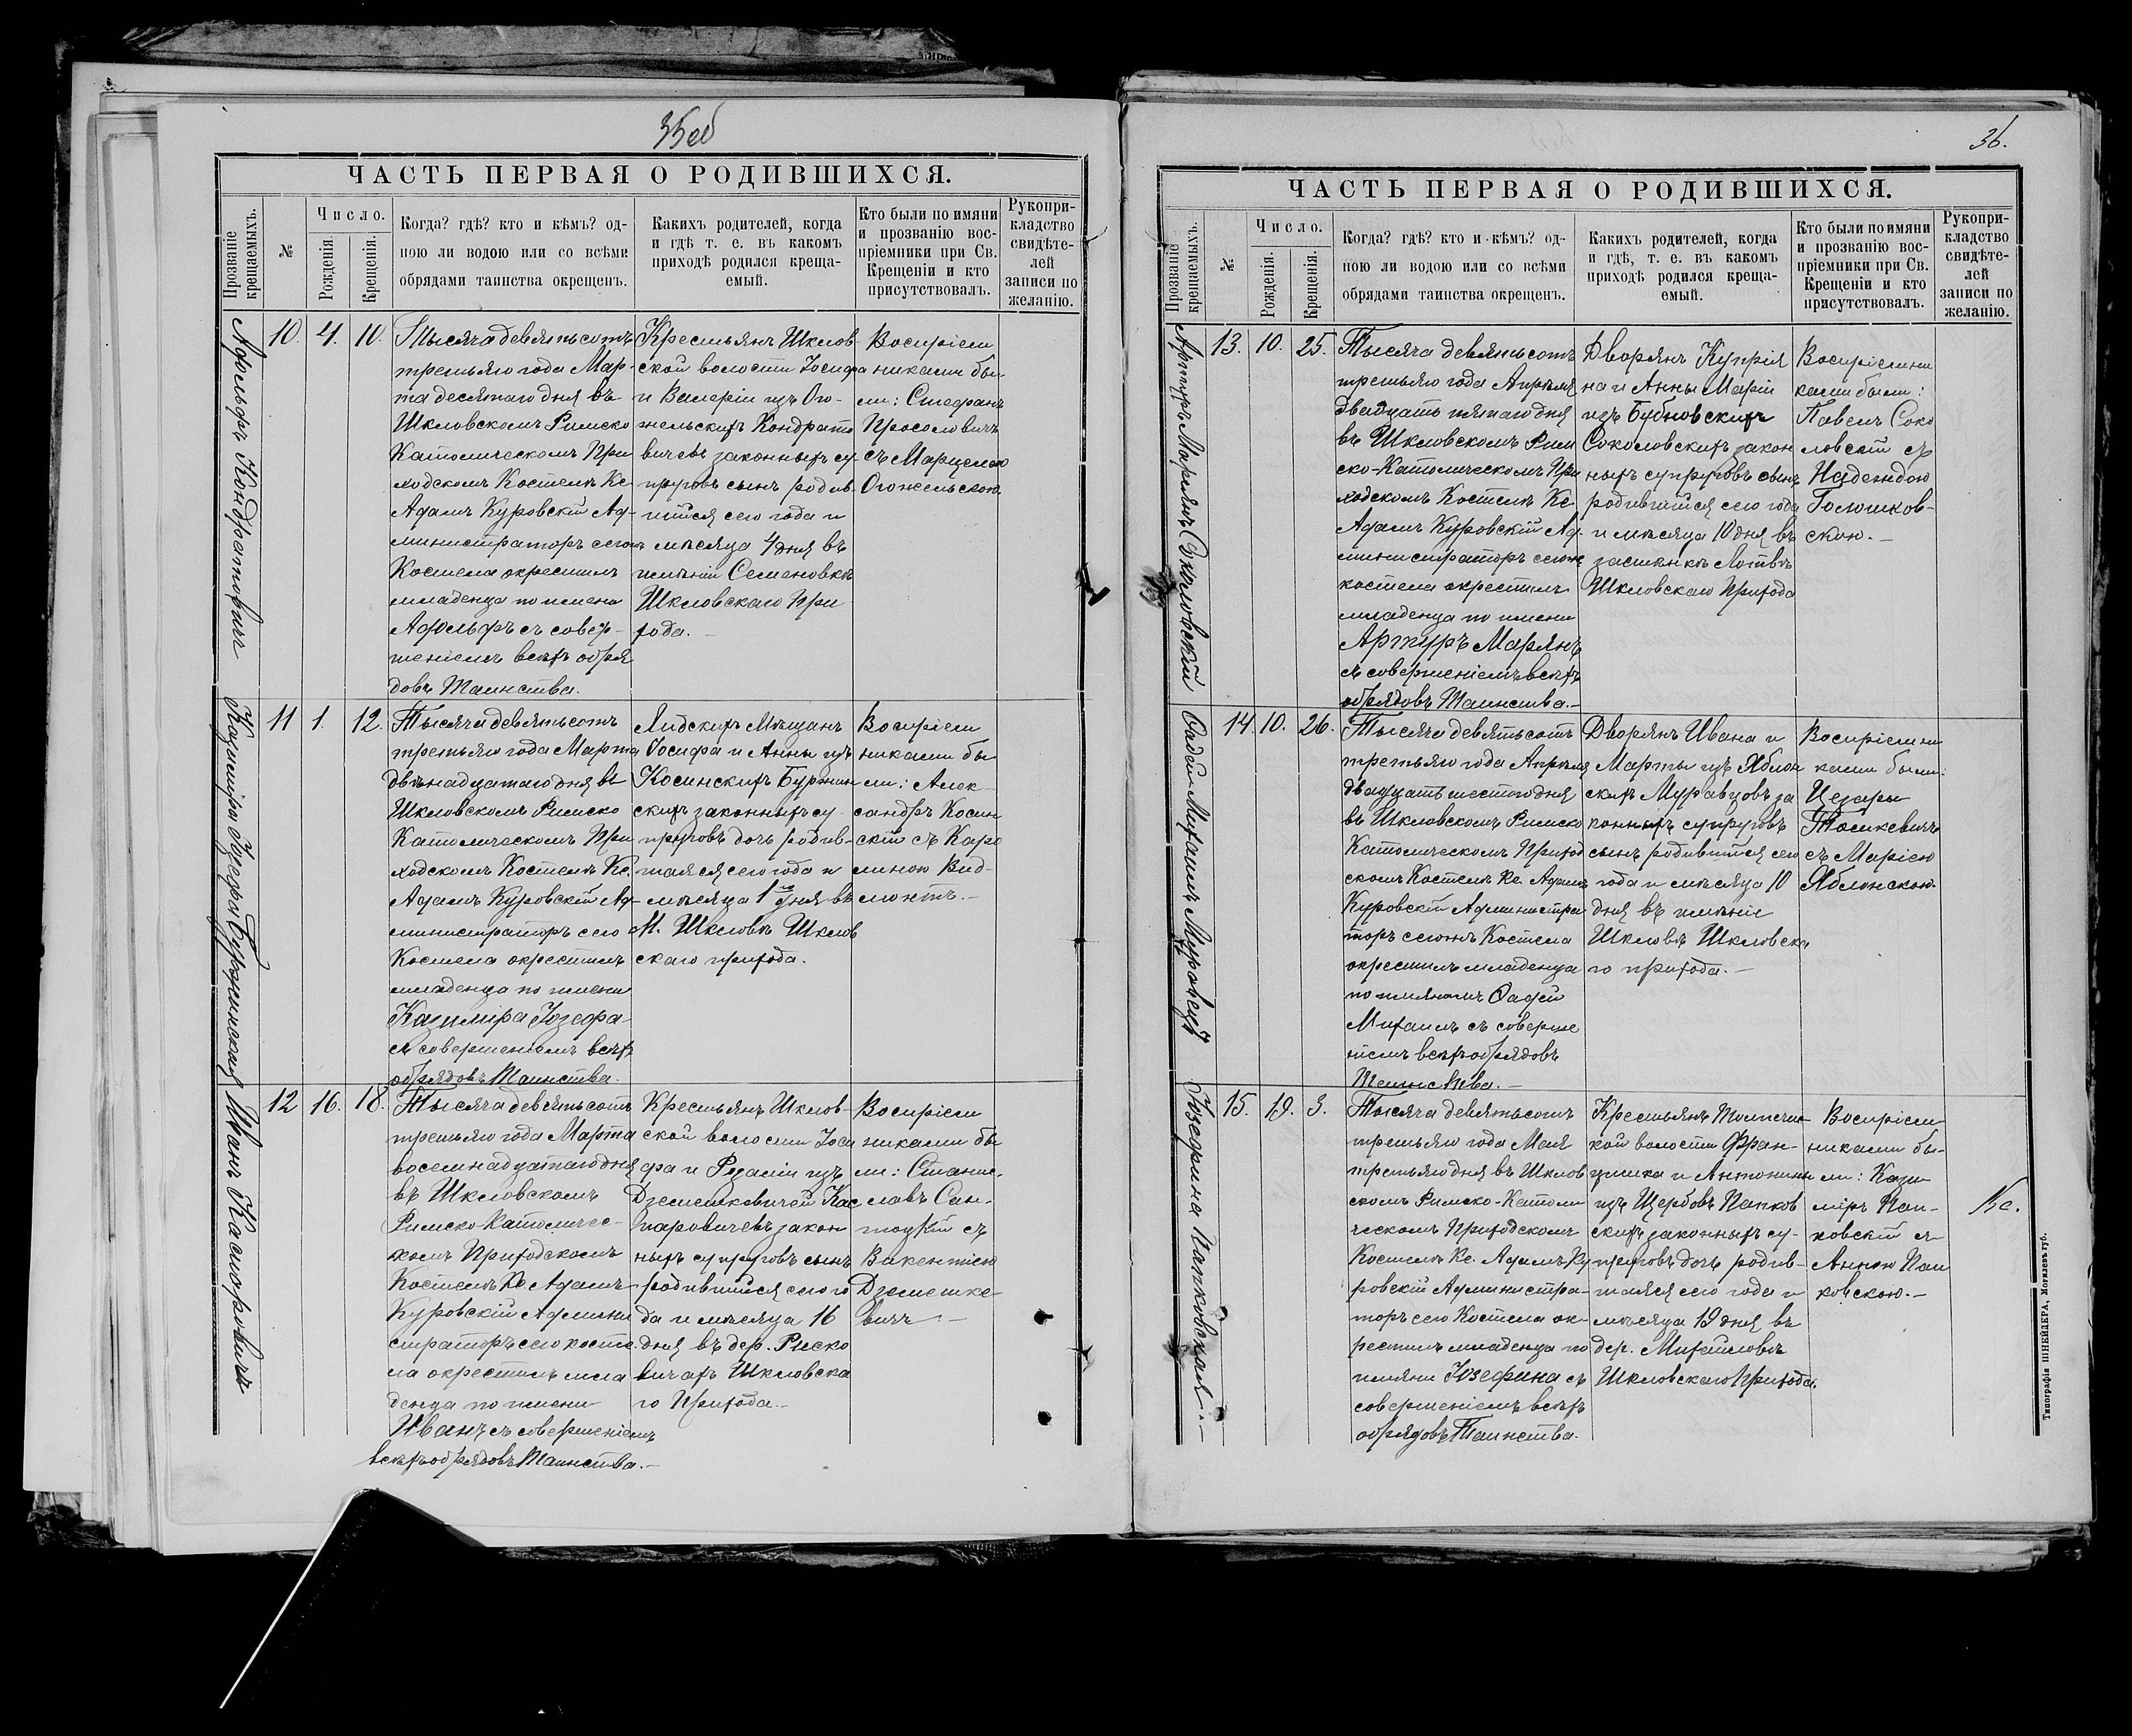 35 об
ЧАСТЬ ПЕРВАЯ О РОДИВШИХСЯ.
Прозваніе крещаемыхъ.
№
Число.
Рожденія.
Крещенія.
Когда? гдѣ? кто и кѣмъ? од-
ною ли водою или со всѣми
обрядами таинства окрещенъ.
Какихъ родителей, когда
и гдѣ т. е. въ какомъ
приходѣ родился креща-
емый.
Кто были по имяни
и прозванію вос-
пріемники при Св.
Крещеніи и кто
присутствовалъ.
Рукопри-
кладство
свидѣте-
лей
записи по
желанію.
Адольфъ Кондратовичъ
10. 4. 10.
Тысяча девятьсотъ
третьяго года Мар-
та десятаго дня въ
Шкловскомъ Римско
Католическомъ При
ходскомъ Костелѣ Кс
Адамъ Куровскій Ад-
министраторъ сего
Костела окрестилъ
младенца по имени
Адольфъ съ совер-
шеніемъ всѣхъ обря
довъ Таинства.
Крестьянъ Шклов-
ской волости Іосифа
и Валеріи изъ Ого-
нельскихъ Кондрато
вичевъ законныхъ су-
пруговъ сынъ родив-
шійся сего года и
мѣсяца 4 дня въ
имѣніи Семеновкѣ
Шкловскаго При
хода.
Воспріем
никами бы-
ли: Стефанъ
Просолович
съ Марцелею
Огонельскою.
Казиміра Юзефа Буржинская
11 1. 12.
Тысяча девятьсотъ
третьяго года Марта
двѣнадцатаго дня въ
Шкловскомъ Римско
Католическомъ При
ходскомъ Костелѣ Кс.
Адамъ Куровскій Ад-
министраторъ сего
Костела окрестилъ
младенца по имени
Казимира Юзефа
съ совершеніемъ всѣхъ
обрядовъ Таинства.
Лидскихъ Мѣщанъ
Іосифа и Анны изъ
Косинскихъ Буржин
скихъ законныхъ су
пруговъ дочь родив-
шаяся сего года и
мѣсяца 1 дня въ
М. Шкловѣ Шклов
скаго прихода.
Воспріем
никами бы
ли: Алек-
сандръ Косин
скій съ Каро
линою Вид-
монтъ.
Иванъ Каспоровичъ
12 16. 18.
Тысяча девятьсотъ
третьяго года Марта
восемнадцатаго дня
въ Шкловскомъ
Римско Католичес-
комъ Приходскомъ
Костелѣ Кс Адамъ
Куровскій Админи
страторъ сего косте
ла окрестилъ мла
денца по имени
Иванъ съ совершеніемъ
всѣхъ обрядовъ Таинства.
Крестьянъ Шклов-
ской волости Іоси
фа и Розаліи изъ
Дземешкевичей Кас
паровичевъ закон
ныхъ супруговъ сынъ
родившійся сего го
да и мѣсяца 16
дня въ дер. Риско
вичахъ Шкловска
го Прихода.
Воспріем
никами бы
ли: Станис-
лавъ Сан-
тоцкій съ
Викентіею
Дземешке-
вичъ
36.
ЧАСТЬ ПЕРВАЯ О РОДИВШИХСЯ.
Прозваніе крещаемыхъ.
№
Число.
Рожденія.
Крещенія.
Когда? гдѣ? кто и кѣмъ? од-
ною ли водою или со всѣми
обрядами таинства окрещенъ.
Какихъ родителей, когда
и гдѣ, т. е. въ какомъ
приходѣ родился креща-
емый.
Кто были по имяни
и прозванію вос-
пріемники при Св.
Крещеніи и кто
присутствовалъ.
Рукопри-
кладство
свидѣте-
лей
записи по
желанію.
Артуръ Марьянъ Соколовскій
13. 10. 25.
Тысяча девятьсотъ
третьяго года Апрѣля
двадцать пятаго дня
въ Шкловскомъ Рим
ско-Католическомъ При
ходскомъ Костелѣ Кс
Адамъ Куровскій Ад.
министраторъ сего
костела окрестилъ
младенца по имени
Артуръ Марьянъ
съ совершеніемъ всѣхъ
обрядовъ Таинства.
Дворянъ Купрія
на и Анны Маріи
изъ Бубновскихъ
Соколовскихъ закон
ныхъ супруговъ сынъ
родившійся сего года
и мѣсяца 10 дня въ
застѣнкѣ Лотвѣ
Шкловскаго Прихода
Воспріемни
ками были:
Павелъ Соко
ловскій съ
Надеждою
Голошков-
скою.
Фадѣй Михаилъ Муравецъ
14. 10. 26.
Тысяча девятьсотъ
третьяго года Апрѣля
двадцать шестого дня
въ Шкловскомъ Римско
Католическомъ Приход
скомъ Костелѣ Кс Адамъ
Куровскій Администра
торъ сегожъ Костела
окрестилъ младенца
по имянамъ Фадѣй
Михаилъ съ соверше
ніемъ всѣхъ обрядовъ
Таинства.
Дворянъ Ивана и
Марты изъ Яблон
скихъ Муравцовъ за
конныхъ супруговъ
сынъ родившійся сего
года и мѣсяца 10
дня въ имѣніи
Шкловѣ Шкловска
го прихода.
Воспріемни
ками были:
Цезары
Томкевичъ
съ Маріею
Яблонскою.
Юзефина Папковская
15. 19. 3.
Тысяча девятьсотъ
третьяго года Мая
третьяго дня въ Шклов
скомъ Римско-Католи
ческомъ Приходскомъ
Костелѣ Кс. Адамъ Ку
ровскій Администра-
торъ сего Костела ок-
рестилъ младенца по
имяни Юзефина съ
совершеніемъ всѣхъ
обрядовъ Таинства.
Крестьянъ
кой волости Фран-
цишка и Антонины
изъ Щербовъ Папков
скихъ законныхъ су-
пруговъ дочь родив-
шаяся сего года и
мѣсяца 19 дня въ
дер. Михайловѣ
Шкловскаго Прихода.
Воспріем
никами бы-
ли: Кази
міръ Пап-
ковскій съ
Анною Пап
ковскою.
Кс.
Типографія ШНЕЙДЕРА, Могилевъ губ.